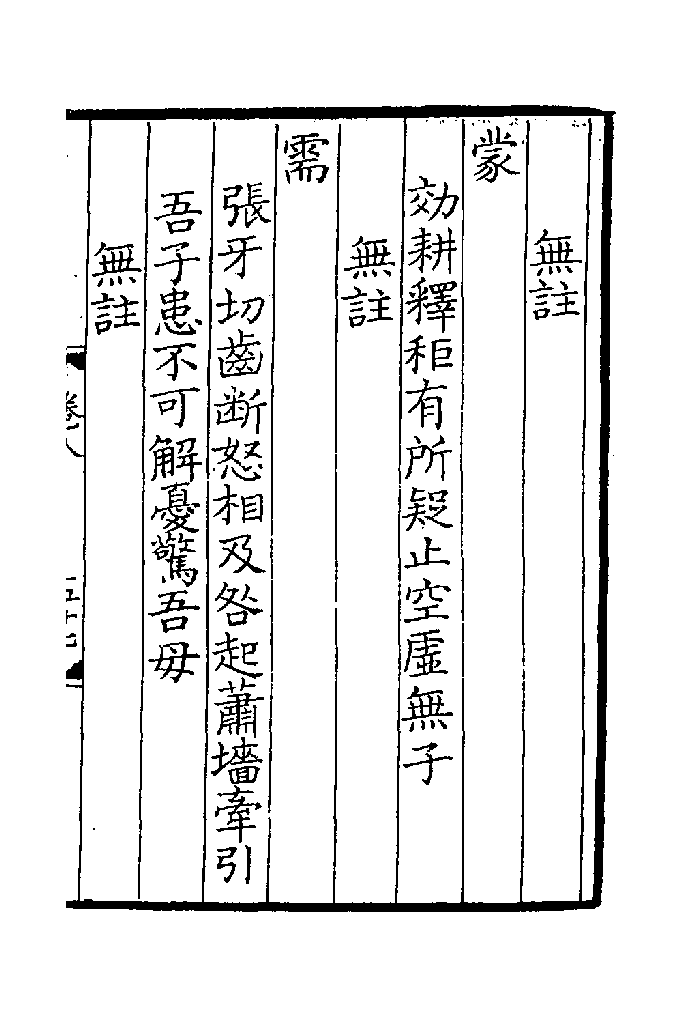 無註
蒙
効耕釋秬有所疑止空虛無子
無註
需
張牙切齒斷怒相及咎起蕭墻牽引
吾子患不可解憂驚吾母
無註